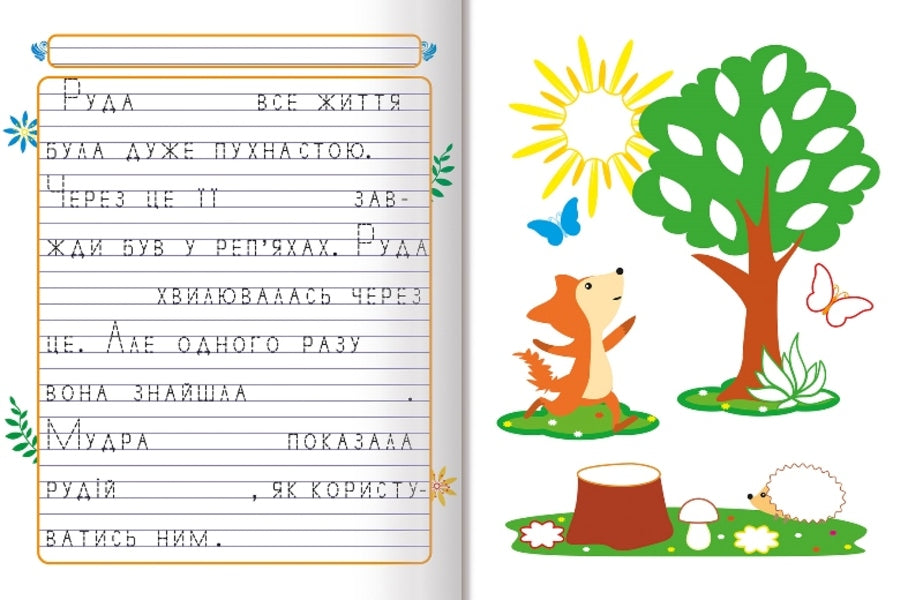 Руда все життя
була дуже пухнастою.
Через це її зав-
жди був у реп'яхах. Руда
хвилювалась через
це. Але одного разу
вона знайшла .
Мудра показала
рудій , як користу-
ватись ним.